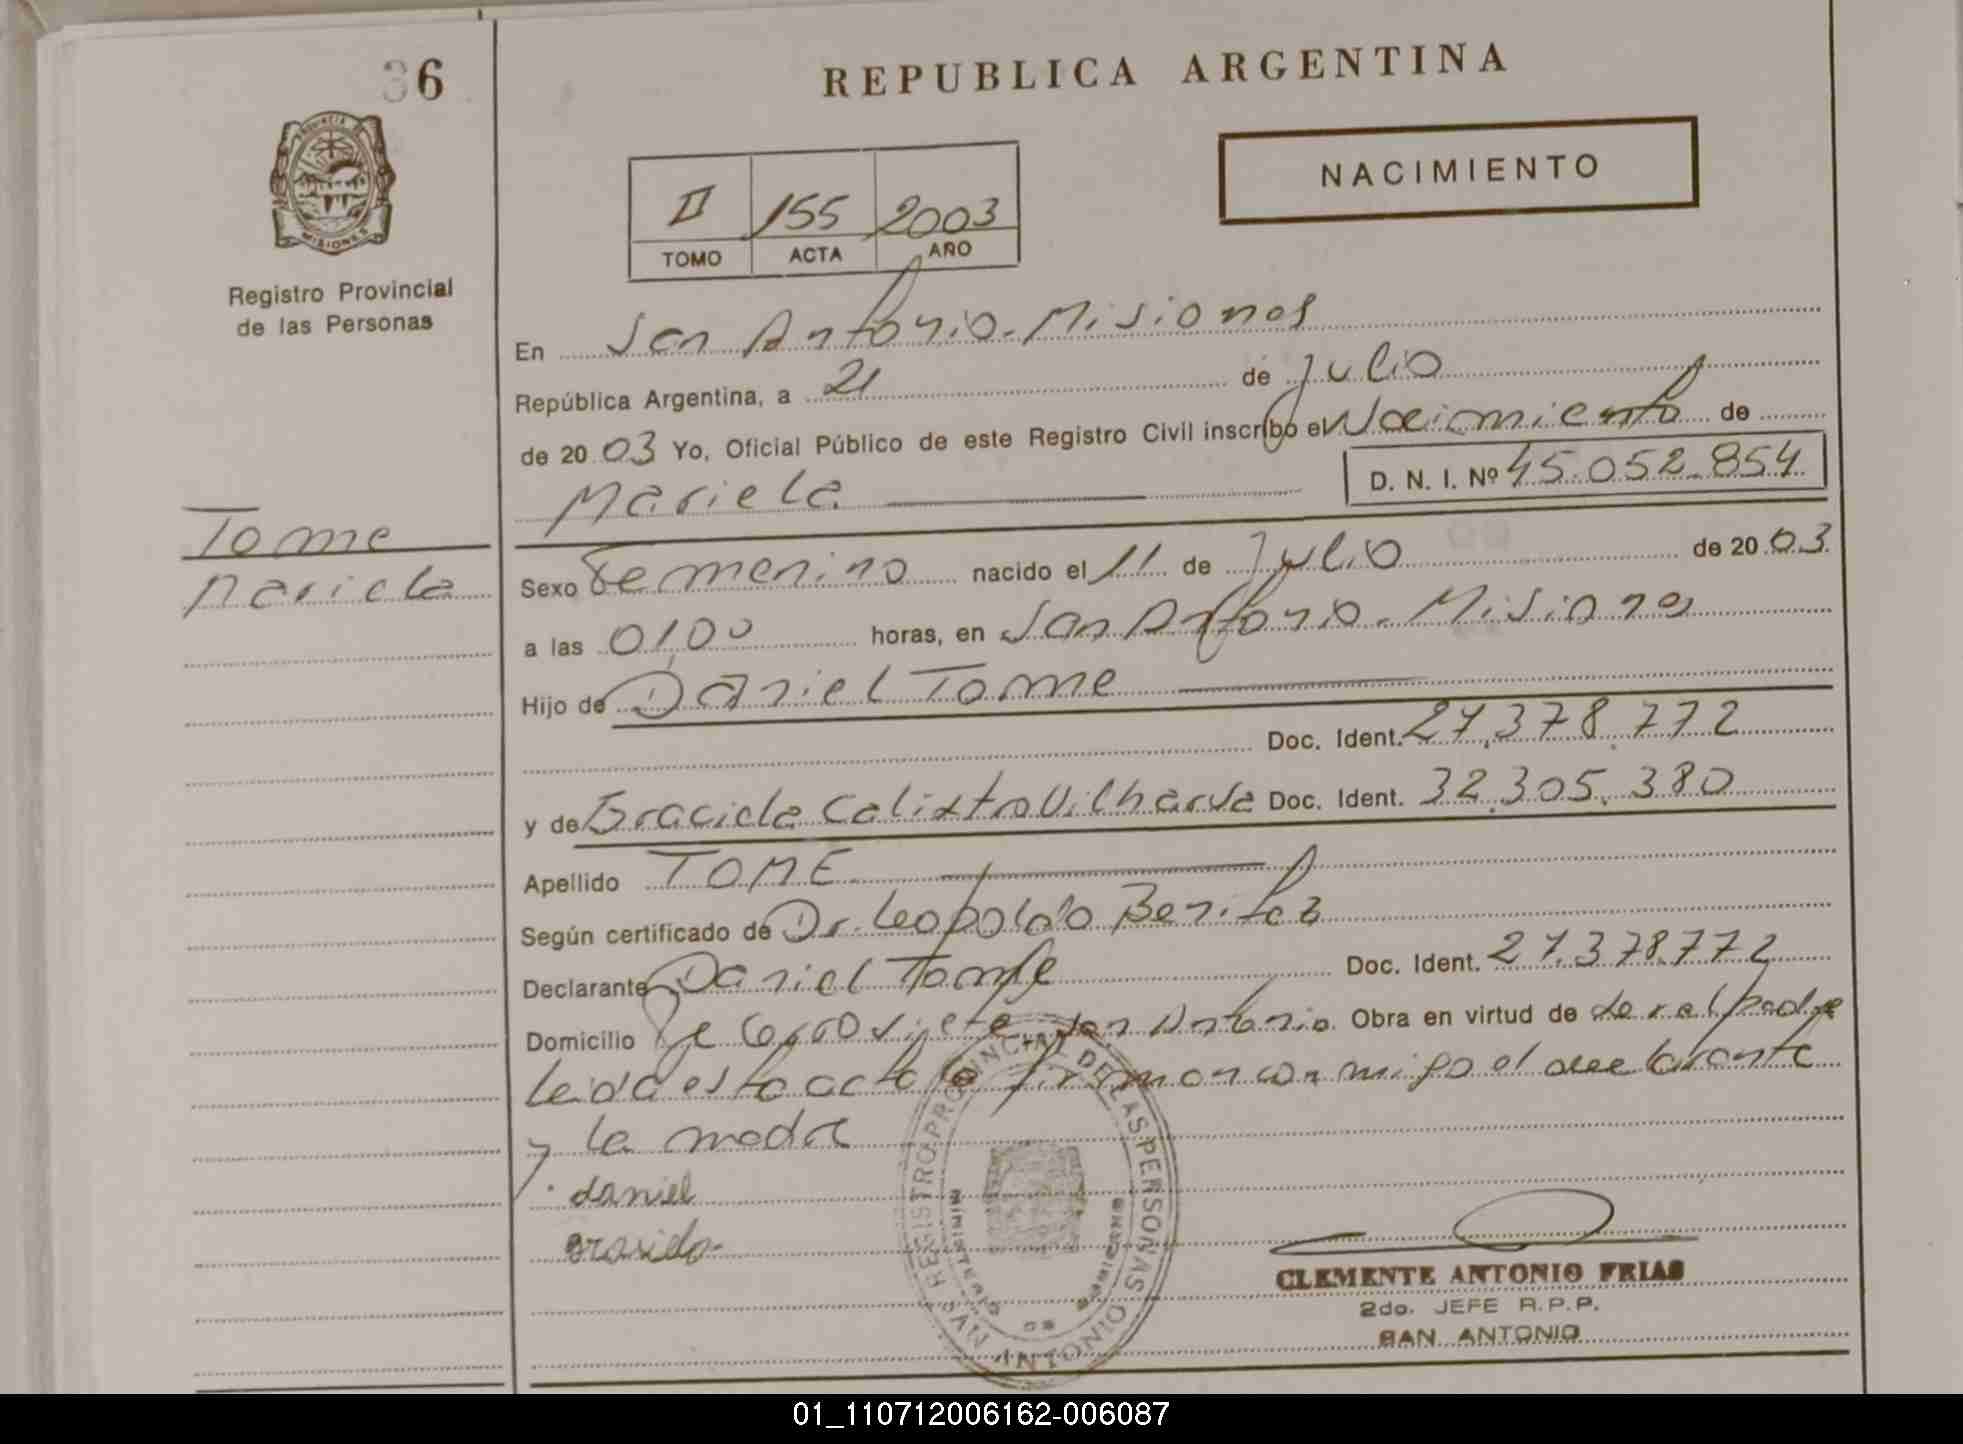 36
REPUBLICA ARGENTINA
PROVINCIA DE
MISIONES
Registro Provincial
de las Personas
NACIMIENTO
II 155 2003
TOMO ACTA AÑO
En San Antonio-Misiones
República Argentina, a 21 de Julio
de 2003 Yo, Oficial Público de este Registro Civil inscribo el Nacimiento de
Mariela D. N. I. Nº 45.052.854
Tome
Mariela
Sexo Femenino nacido el 11 de Julio de 2003
a las 01,00 horas, en San Antonio-Misiones
Hijo de Daniel Tome
Doc. Ident. 27.378.772
y de Graciela Calixtro Vilharva Doc. Ident. 32.305.380
Apellido TOME
Según certificado de Dr. Leopoldo Benitez
Declarante Daniel Tome Doc. Ident. 27.378.772
Domicilio San Antonio. Obra en virtud de ser el padre
Leida esta acta la firman conmigo el declarante
y la madre
daniel
grasiela
REGISTRO PROVINCIAL DE LAS PERSONAS
MINISTERIO DE GOBIERNO
CLEMENTE ANTONIO FRIAS
2do. JEFE R.P.P.
SAN ANTONIO
01_110712006162-006087